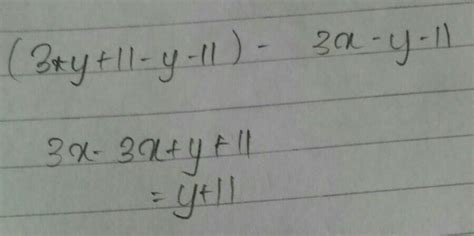 (3x-y+11-y-11) - 3x-y-11
3x- 3x+y+11
= y+11